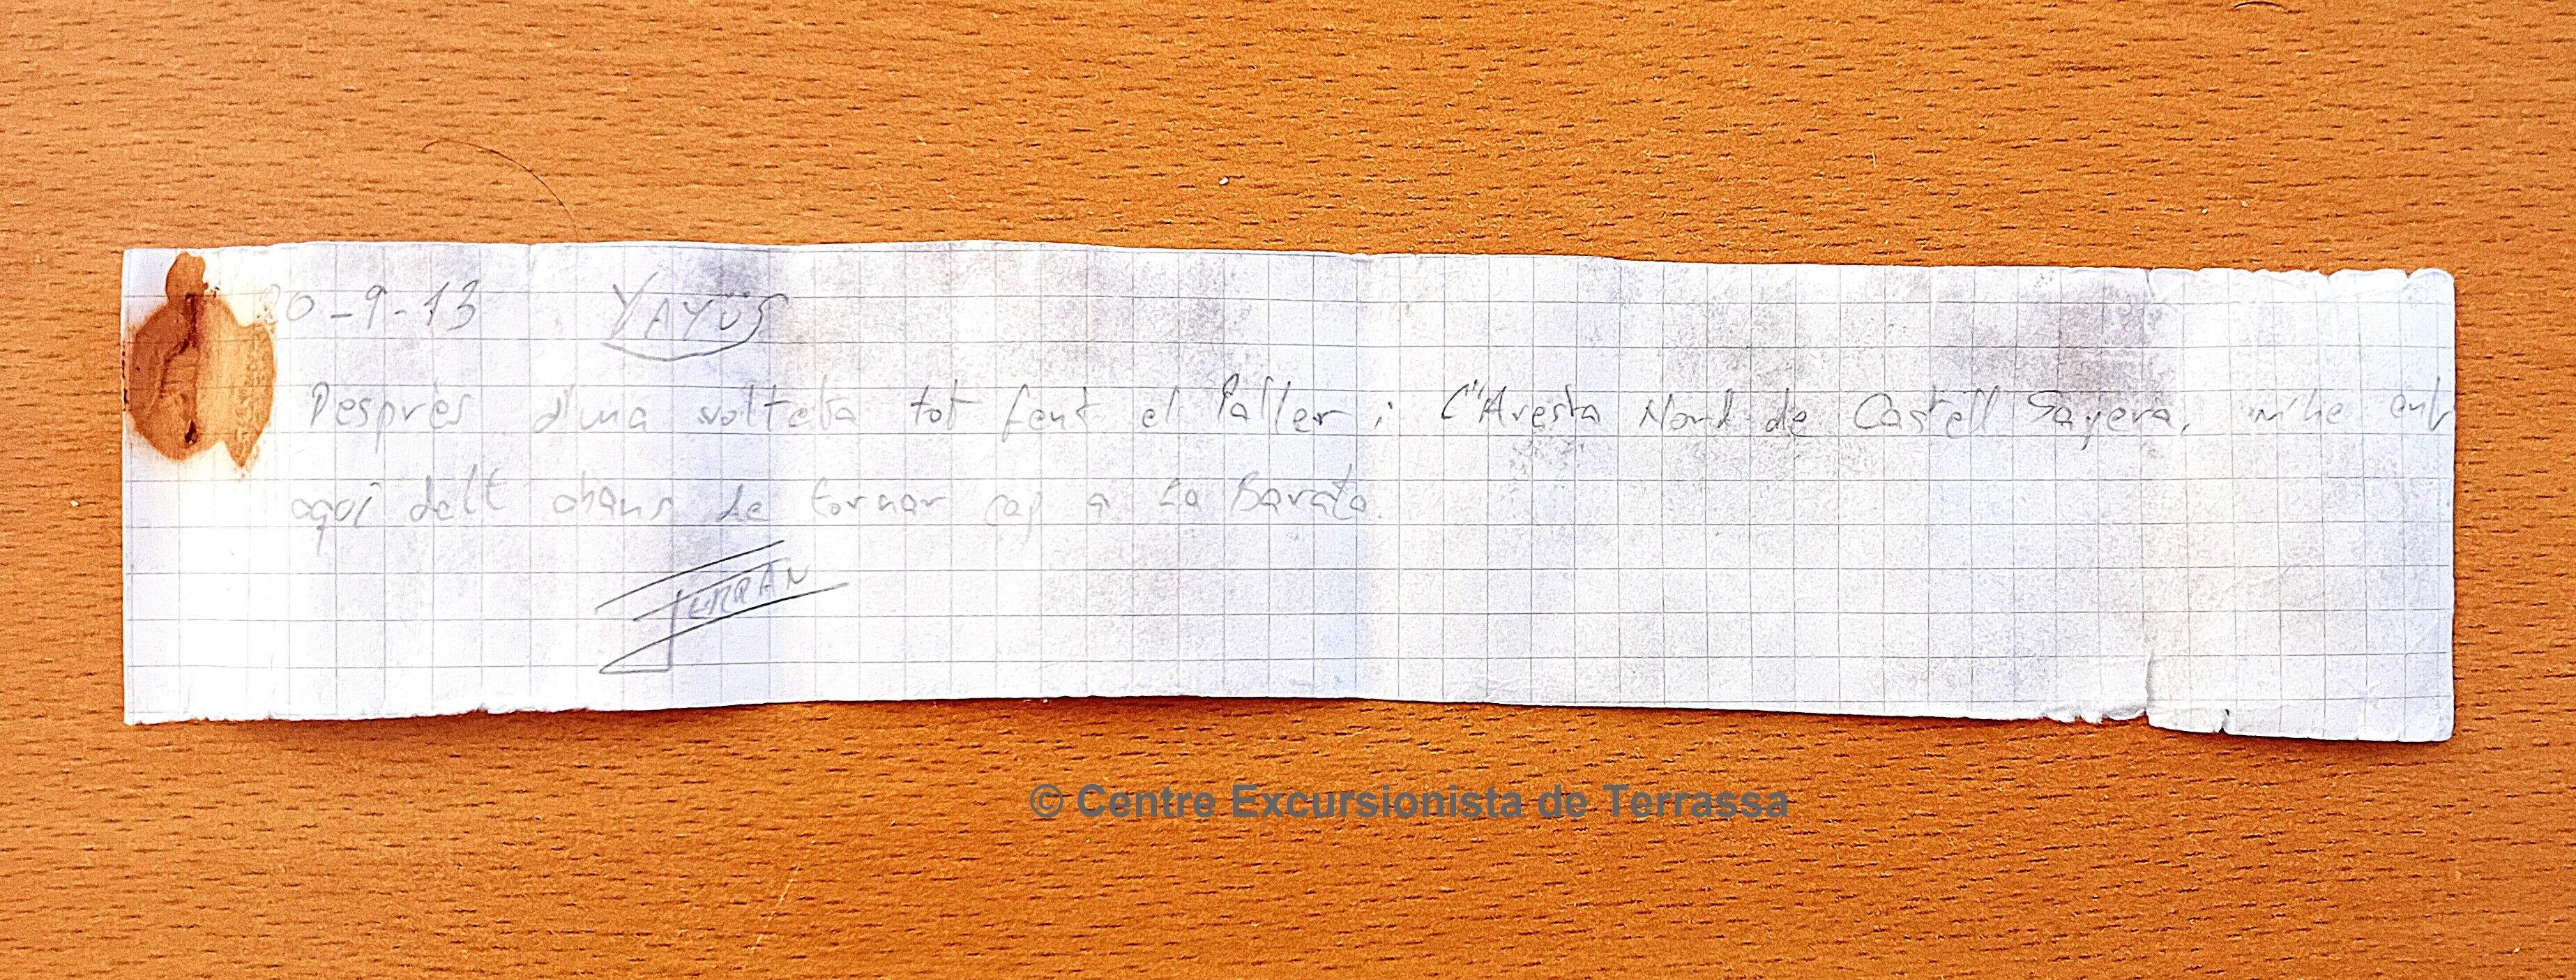 20-9-13 YAYÜS
Desprès d'una volteta tot fent el Paller i l'Aresta Nord de Castell Sapera, m'he
aquí dalt abans de tornar cap a La Barata.
FERRAN
© Centre Excursionista de Terrassa